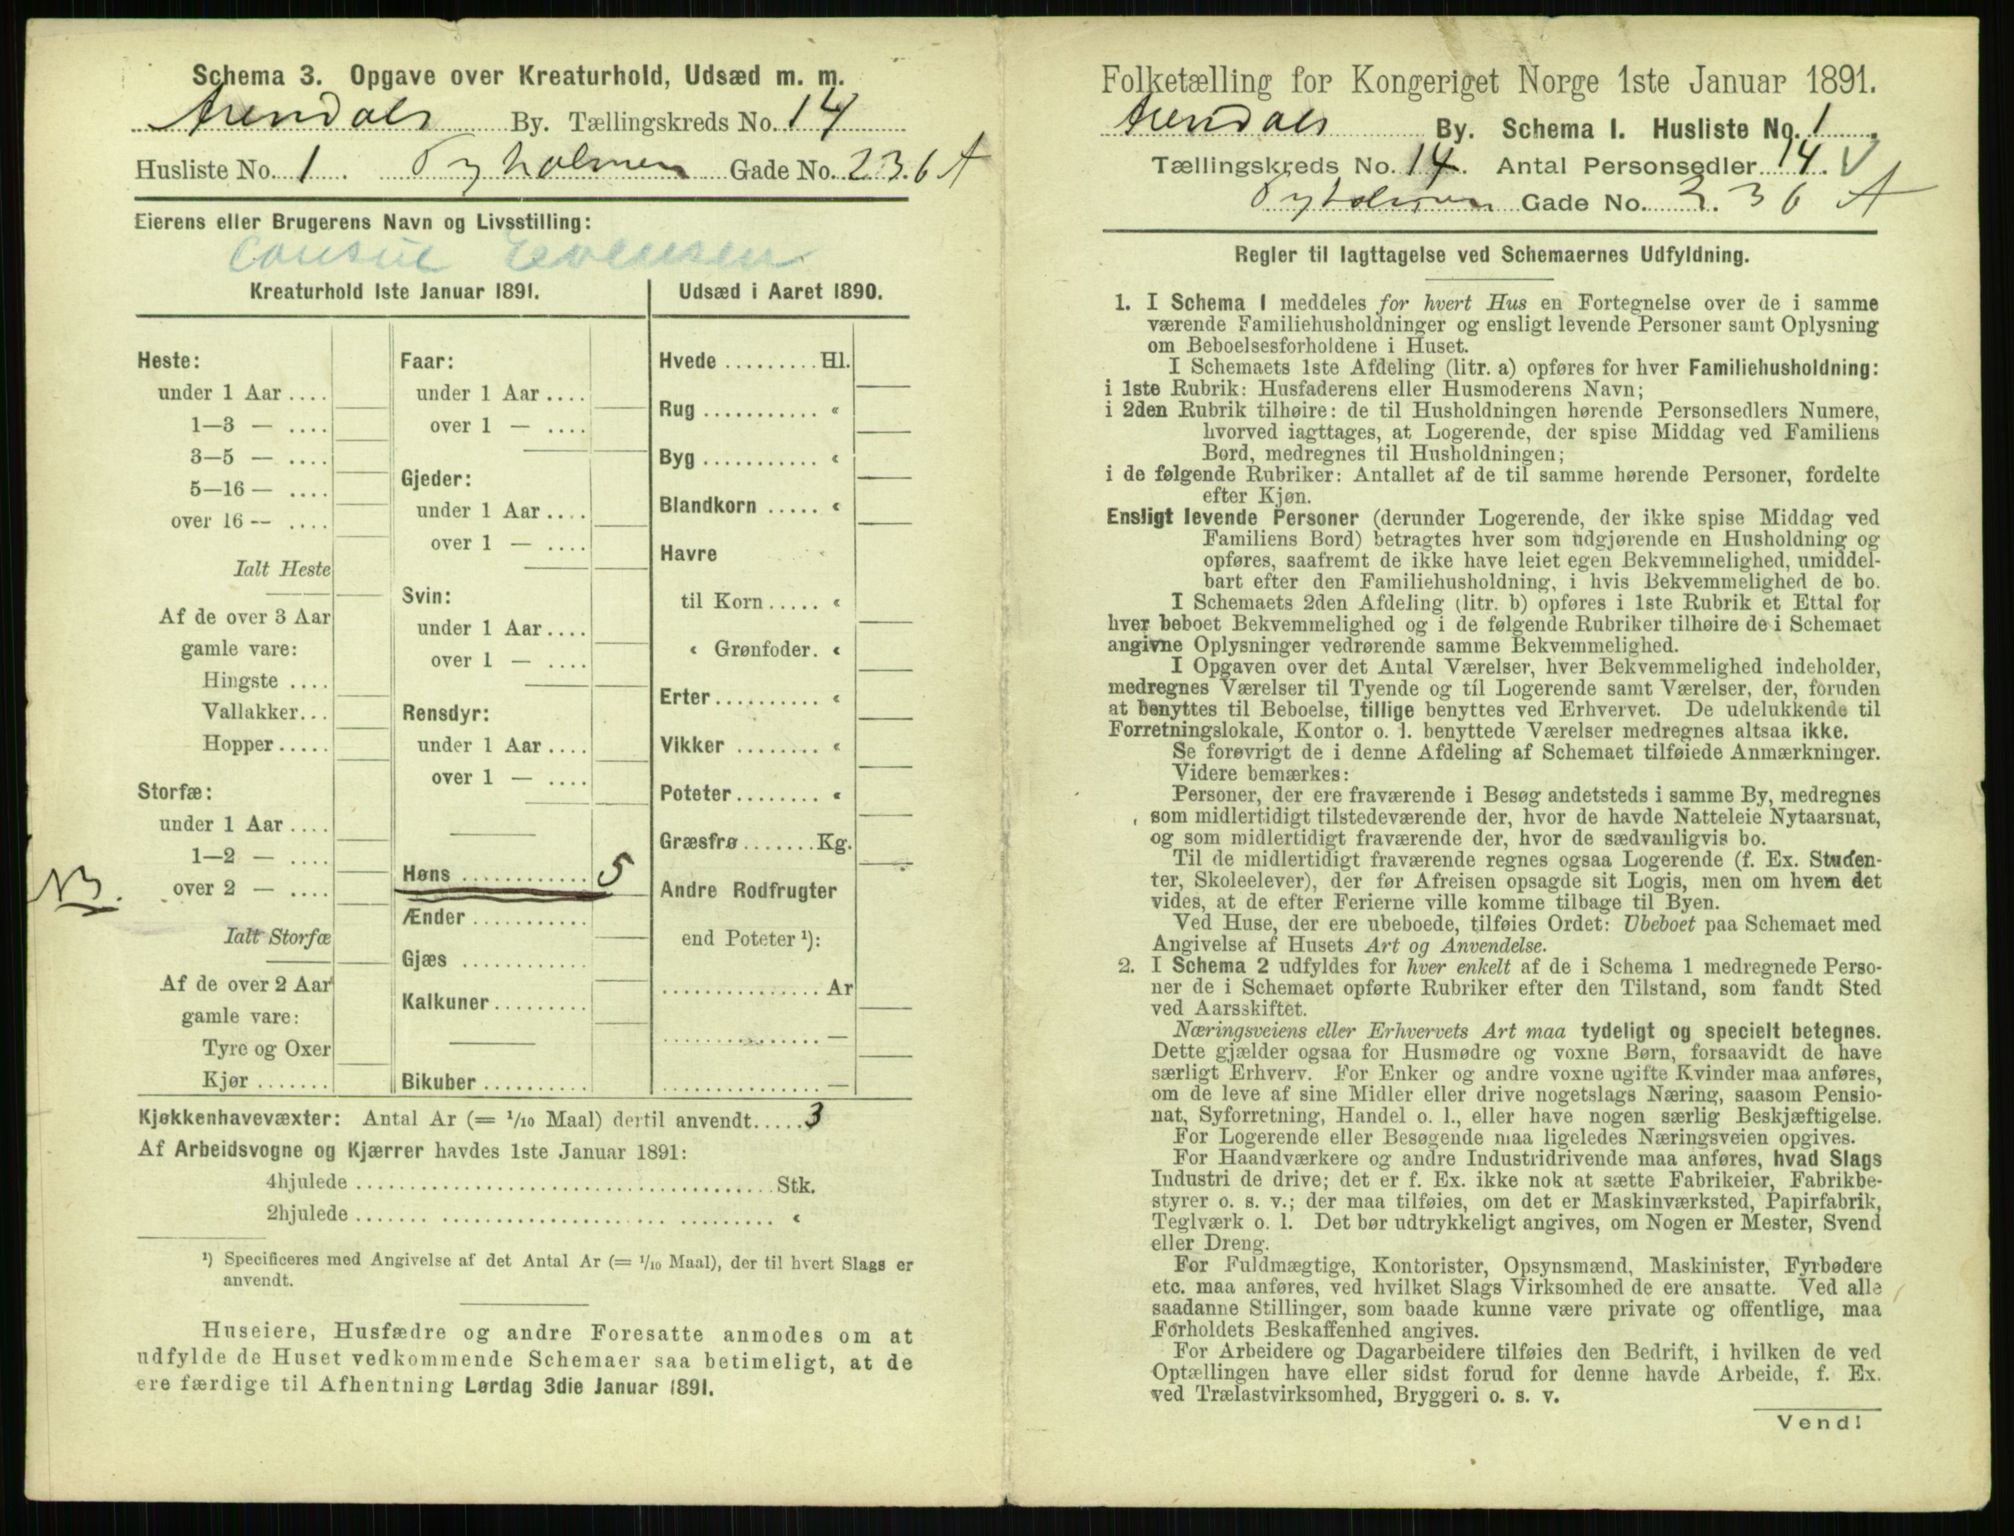 Schema 3. Opgave over Kreaturhold, Udsæd m. m.
Arendals By. Tællingskreds No. 14
Husliste No. 1. Tyholmen Gade No. 236 A
Eierens eller Brugerens Navn og Livsstilling:
Consul Evensen
Kreaturhold 1ste Januar 1891.
Heste:
under 1 Aar ....
1—3 — ....
3—5 — ....
5—16 — ....
over 16 — ....
Ialt Heste
Af de over 3 Aar
gamle vare:
Hingste ....
Vallakker...
Hopper.....
Storfæ:
under 1 Aar ....
1—2 — ....
over 2 — ....
NB.
Ialt Storfæ
Af de over 2 Aar
gamle vare:
Tyre og Oxer
Kjør.......
Faar:
under 1 Aar ....
over 1 — ....
Gjeder:
under 1 Aar ....
over 1 — ....
Svin:
under 1 Aar....
over 1 — ....
Rensdyr:
under 1 Aar ....
over 1 — ....
Høns ........... 5
Ænder ..........
Gjæs ...........
Kalkuner........
Bikuber.........
Udsæd i Aaret 1890.
Hvede ........ Hl.
Rug .......... «
Byg .......... «
Blandkorn ..... «
Havre
til Korn ..... «
« Grønfoder. «
Erter......... «
Vikker ....... «
Poteter....... «
Græsfrø ...... Kg.
Andre Rodfrugter
end Poteter ¹):
.............. Ar
.............. —
.............. —
Kjøkkenhavevæxter: Antal Ar (= 1/10 Maal) dertil anvendt..... 3
Af Arbeidsvogne og Kjærrer havdes 1ste Januar 1891:
4hjulede ........................................ Stk.
2hjulede ........................................ «
¹) Specificeres med Angivelse af det Antal Ar (= 1/10 Maal), der til hvert Slags er
anvendt.
Huseiere, Husfædre og andre Foresatte anmodes om at
udfylde de Huset vedkommende Schemaer saa betimeligt, at de
ere færdige til Afhentning Lørdag 3die Januar 1891.
Folketælling for Kongeriget Norge 1ste Januar 1891.
Arendals By. Schema 1. Husliste No. 1.
Tællingskreds No. 14. Antal Personsedler 14. V
Tyholmen Gade No. 236 A
Regler til Iagttagelse ved Schemaernes Udfyldning.
1. I Schema 1 meddeles for hvert Hus en Fortegnelse over de i samme
værende Familiehusholdninger og ensligt levende Personer samt Oplysning
om Beboelsesforholdene i Huset.
I Schemaets 1ste Afdeling (litr. a) opføres for hver Familiehusholdning:
i 1ste Rubrik: Husfaderens eller Husmoderens Navn;
i 2den Rubrik tilhøire: de til Husholdningen hørende Personsedlers Numere,
hvorved iagttages, at Logerende, der spise Middag ved Familiens
Bord, medregnes til Husholdningen;
i de følgende Rubriker: Antallet af de til samme hørende Personer, fordelte
efter Kjøn.
Ensligt levende Personer (derunder Logerende, der ikke spise Middag ved
Familiens Bord) betragtes hver som udgjørende en Husholdning og
opføres, saafremt de ikke have leiet egen Bekvemmelighed, umiddel-
bart efter den Familiehusholdning, i hvis Bekvemmelighed de bo.
I Schemaets 2den Afdeling (litr. b) opføres i 1ste Rubrik et Ettal for
hver beboet Bekvemmelighed og i de følgende Rubriker tilhøire de i Schemaet
angivne Oplysninger vedrørende samme Bekvemmelighed.
I Opgaven over det Antal Værelser, hver Bekvemmelighed indeholder,
medregnes Værelser til Tyende og til Logerende samt Værelser, der, foruden
at benyttes til Beboelse, tillige benyttes ved Erhvervet. De udelukkende til
Forretningslokale, Kontor o. l. benyttede Værelser medregnes altsaa ikke.
Se forøvrigt de i denne Afdeling af Schemaet tilføiede Anmærkninger.
Videre bemærkes:
Personer, der ere fraværende i Besøg andetsteds i samme By, medregnes
som midlertidigt tilstedeværende der, hvor de havde Natteleie Nytaarsnat,
og som midlertidigt fraværende der, hvor de sædvanligvis bo.
Til de midlertidigt fraværende regnes ogsaa Logerende (f. Ex. Studen-
ter, Skoleelever), der før Afreisen opsagde sit Logis, men om hvem det
vides, at de efter Ferierne ville komme tilbage til Byen.
Ved Huse, der ere ubeboede, tilføies Ordet: Ubeboet paa Schemaet med
Angivelse af Husets Art og Anvendelse.
2. I Schema 2 udfyldes for hver enkelt af de i Schema 1 medregnede Perso-
ner de i Schemaet opførte Rubriker efter den Tilstand, som fandt Sted
ved Aarsskiftet.
Næringsveiens eller Erhvervets Art maa tydeligt og specielt betegnes.
Dette gjælder ogsaa for Husmødre og voxne Børn, forsaavidt de have
særligt Erhverv. For Enker og andre voxne ugifte Kvinder maa anføres,
om de leve af sine Midler eller drive nogetslags Næring, saasom Pensio-
nat, Syforretning, Handel o. l., eller have nogen særlig Beskjæftigelse.
For Logerende eller Besøgende maa ligeledes Næringsveien opgives.
For Haandværkere og andre Industridrivende maa anføres, hvad Slags
Industri de drive; det er f. Ex. ikke nok at sætte Fabrikeier, Fabrikbe-
styrer o. s. v.; der maa tilføies, om det er Maskinværksted, Papirfabrik,
Teglværk o. l. Det bør udtrykkeligt angives, om Nogen er Mester, Svend
eller Dreng.
For Fuldmægtige, Kontorister, Opsynsmænd, Maskinister, Fyrbødere
etc. maa anføres, ved hvilket Slags Virksomhed de ere ansatte. Ved alle
saadanne Stillinger, som baade kunne være private og offentlige, maa
Forholdets Beskaffenhed angives.
For Arbeidere og Dagarbeidere tilføies den Bedrift, i hvilken de ved
Optællingen have eller sidst forud for denne havde Arbeide, f. Ex.
ved Trælastvirksomhed, Bryggeri o. s. v.
Vend!